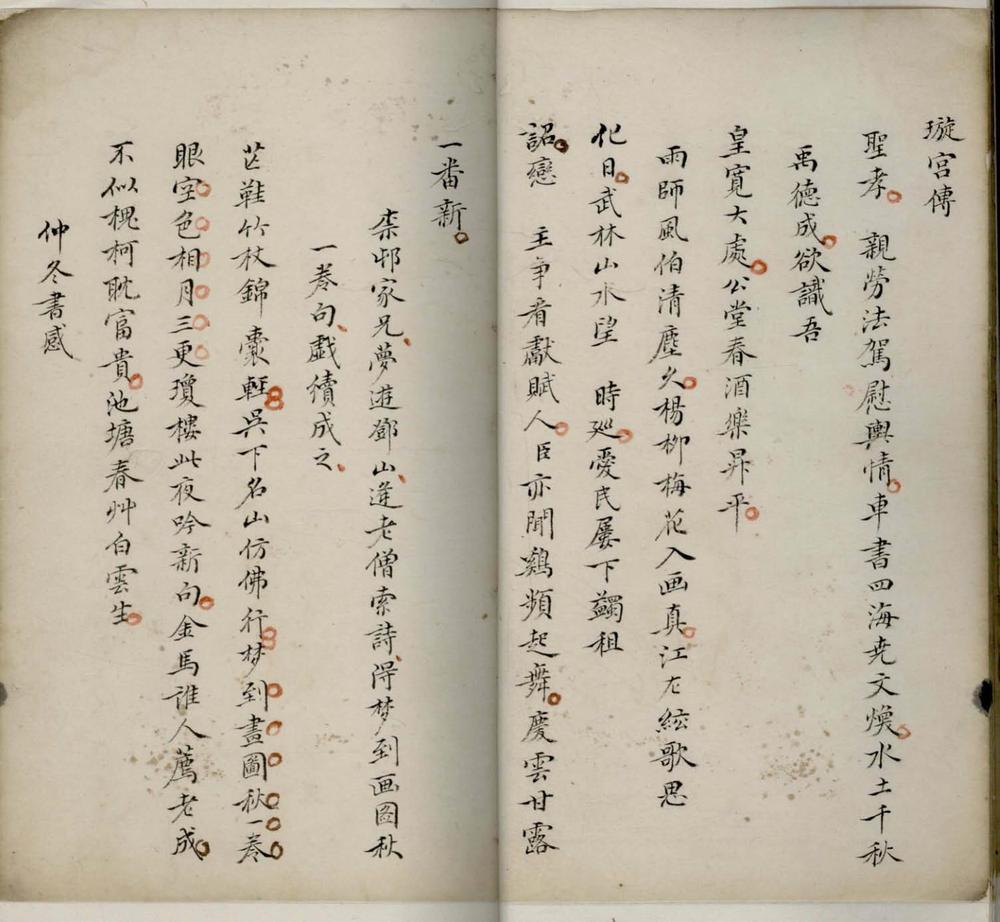 璇宮傳
聖孝 親勞法駕慰輿情車書四海堯文煥水土千秋
禹德成欲識吾
皇寬大處公堂春酒樂昇平
雨師風伯清塵久楊柳梅花入画真江左絃歌思
化日武林山水望 時廵愛民屢下蠲租
詔戀 主爭看獻賦人臣亦聞鷄頻起舞慶雲甘露
一番新
柰邨家兄夢遊鄧山逢老僧索詩得梦到画图秋
一卷句戯續成之
芒鞋竹杖錦囊輕吳下名山仿佛行梦到畫圖秋一卷
眼空色相月三更瓊樓此夜吟新句金馬誰人薦老成
不似槐柯耽富貴池塘春艸白雲生
仲冬書感